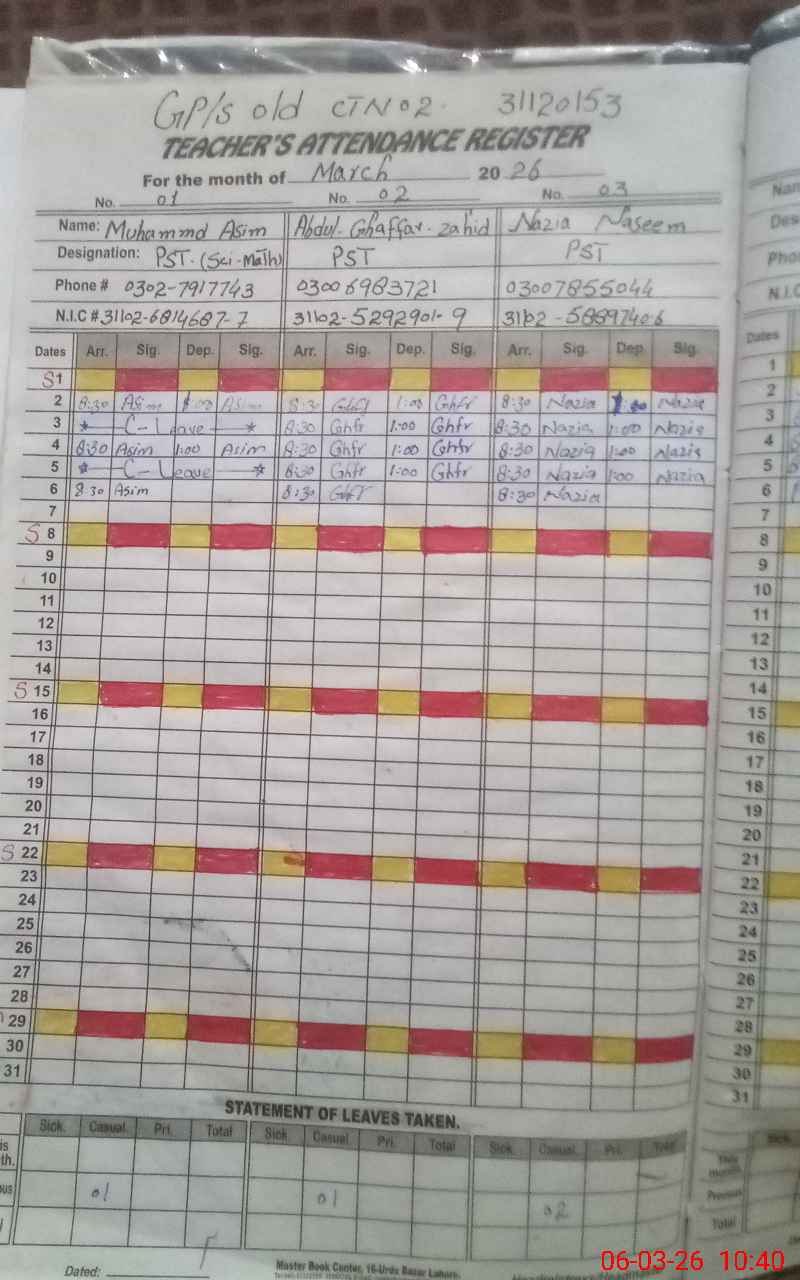 GP/s old CTN02. 31120153
TEACHER'S ATTENDANCE REGISTER
For the month of March 2026
No. 01 No. 02 No. 03
Name: Muhammd Asim Abdul. Ghaffar. zahid Nazia Naseem
Designation: PST. (Sci-Math) PST PST
Phone # 0302-7917743 03006983721 03007855044
N.I.C # 31102-6814687-7 31102-5292901-9
Dates Arr. Sig. Dep. Sig. Arr. Sig. Dep. Sig. Arr. Sig. Dep. Sig.
S1
2 8:30 Asim 1:00 Asim 8:30 Ghfr 1:00 Ghfr 8:30 Nazia 1:00 Nazia
3 * C-Leave * 8:30 Ghfr 1:00 Ghfr 8:30 Nazia 1:00 Nazia
4 8:30 Asim 1:00 Asim 8:30 Ghfr 1:00 Ghfr 8:30 Nazia 1:00 Nazia
5 * C-Leave * 8:30 Ghfr 1:00 Ghfr 8:30 Nazia 1:00 Nazia
6 8:30 Asim 8:30 Ghfr 8:30 Nazia
7
S 8
9
10
11
12
13
14
S 15
16
17
18
19
20
21
S 22
23
24
25
26
27
28
29
30
31
STATEMENT OF LEAVES TAKEN.
Sick. Casual. Pri. Total Sick. Casual. Pri. Total Sick. Casual. Pri. Total
01 01 02
Dated:
Master Book Center, 16-Urdu Bazar Lahore.
Dates
1
2
3
4
5
6
7
8
9
10
11
12
13
14
15
16
17
18
19
20
21
22
23
24
25
26
27
28
29
30
31
Sick.
This month.
Previous
Total
06-03-26 10:40